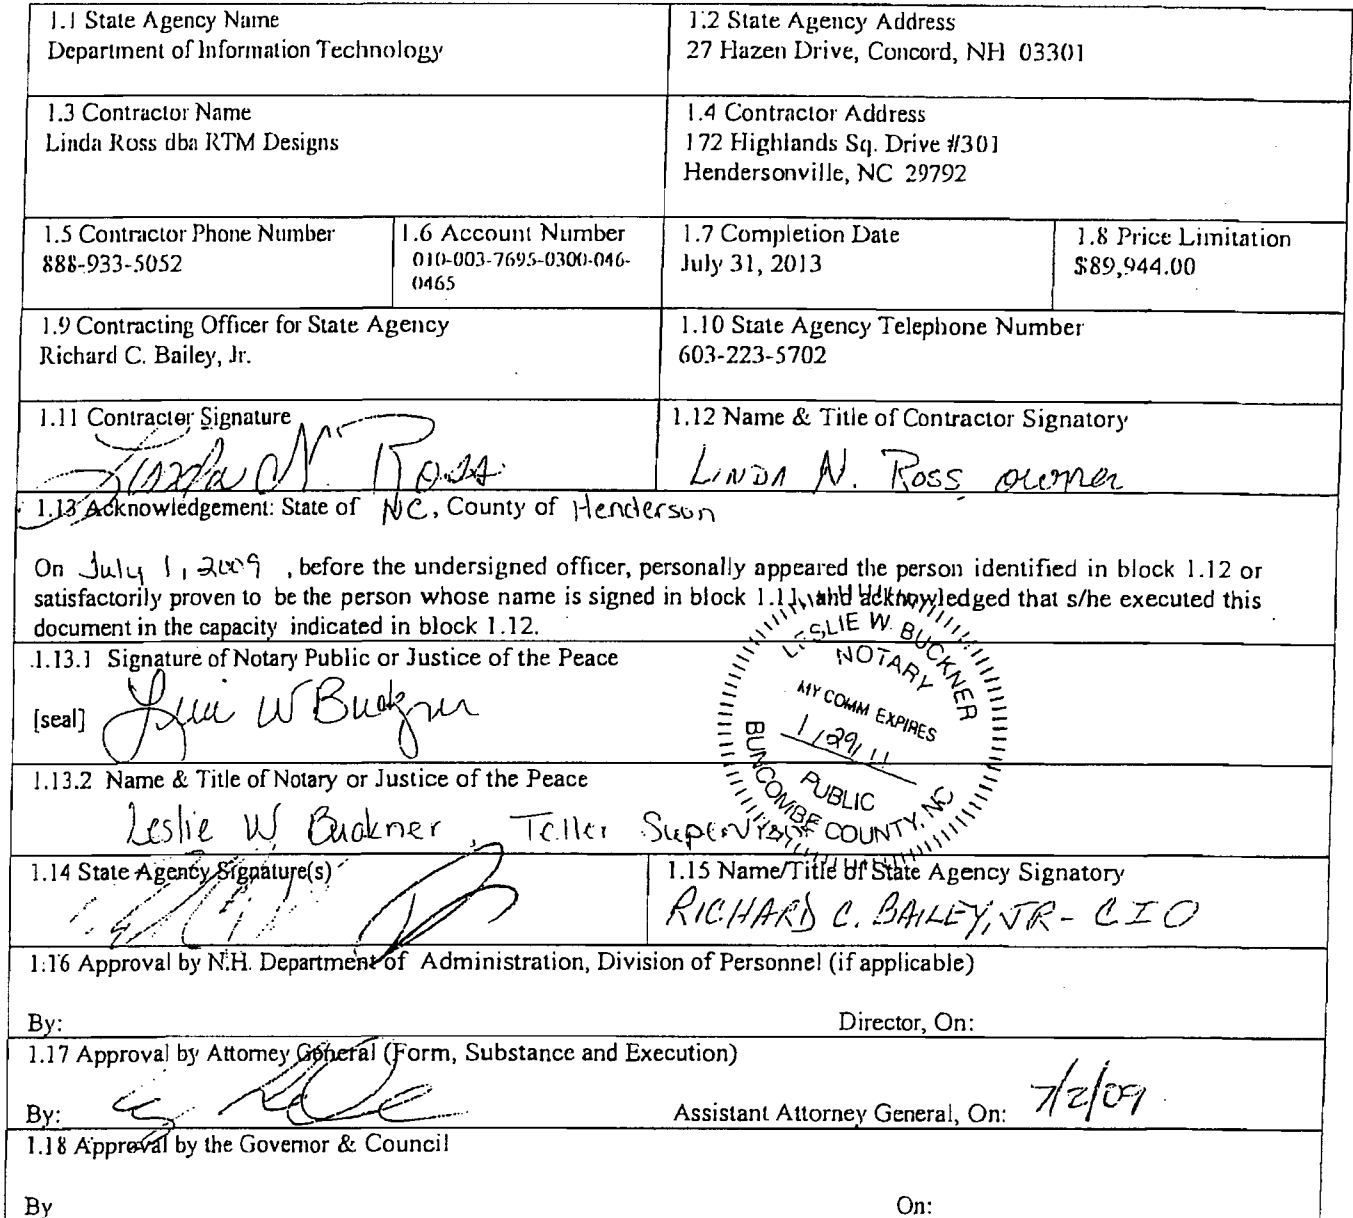 1.1 State Agency Name
Department of Information Technology
1.2 State Agency Address
27 Hazen Drive, Concord, NH 03301
1.3 Contractor Name
Linda Ross dba RTM Designs
1.4 Contractor Address
172 Highlands Sq. Drive #301
Hendersonville, NC 29792
1.5 Contractor Phone Number
888-933-5052
1.6 Account Number
010-003-7695-0300-046-
0465
1.7 Completion Date
July 31, 2013
1.8 Price Limitation
$89,944.00
1.9 Contracting Officer for State Agency
Richard C. Bailey, Jr.
1.10 State Agency Telephone Number
603-223-5702
1.11 Contractor Signature
Linda N. Ross
1.12 Name & Title of Contractor Signatory
LINDA N. Ross owner
1.13 Acknowledgement: State of NC, County of Henderson
On July 1, 2009 , before the undersigned officer, personally appeared the person identified in block 1.12 or
satisfactorily proven to be the person whose name is signed in block 1.11, and acknowledged that s/he executed this
document in the capacity indicated in block 1.12.
1.13.1 Signature of Notary Public or Justice of the Peace
[seal]
Leslie W Buckner
LESLIE W. BUCKNER
NOTARY
MY COMM EXPIRES
1/29/11
PUBLIC
BUNCOMBE COUNTY, NC
1.13.2 Name & Title of Notary or Justice of the Peace
Leslie W Buckner, Teller Supervisor
1.14 State Agency Signature(s)
1.15 Name/Title of State Agency Signatory
RICHARD C. BAILEY, JR - CIO
1.16 Approval by N.H. Department of Administration, Division of Personnel (if applicable)
By:
Director, On:
1.17 Approval by Attorney General (Form, Substance and Execution)
By:
Assistant Attorney General, On: 7/2/09
1.18 Approval by the Governor & Council
By
On: